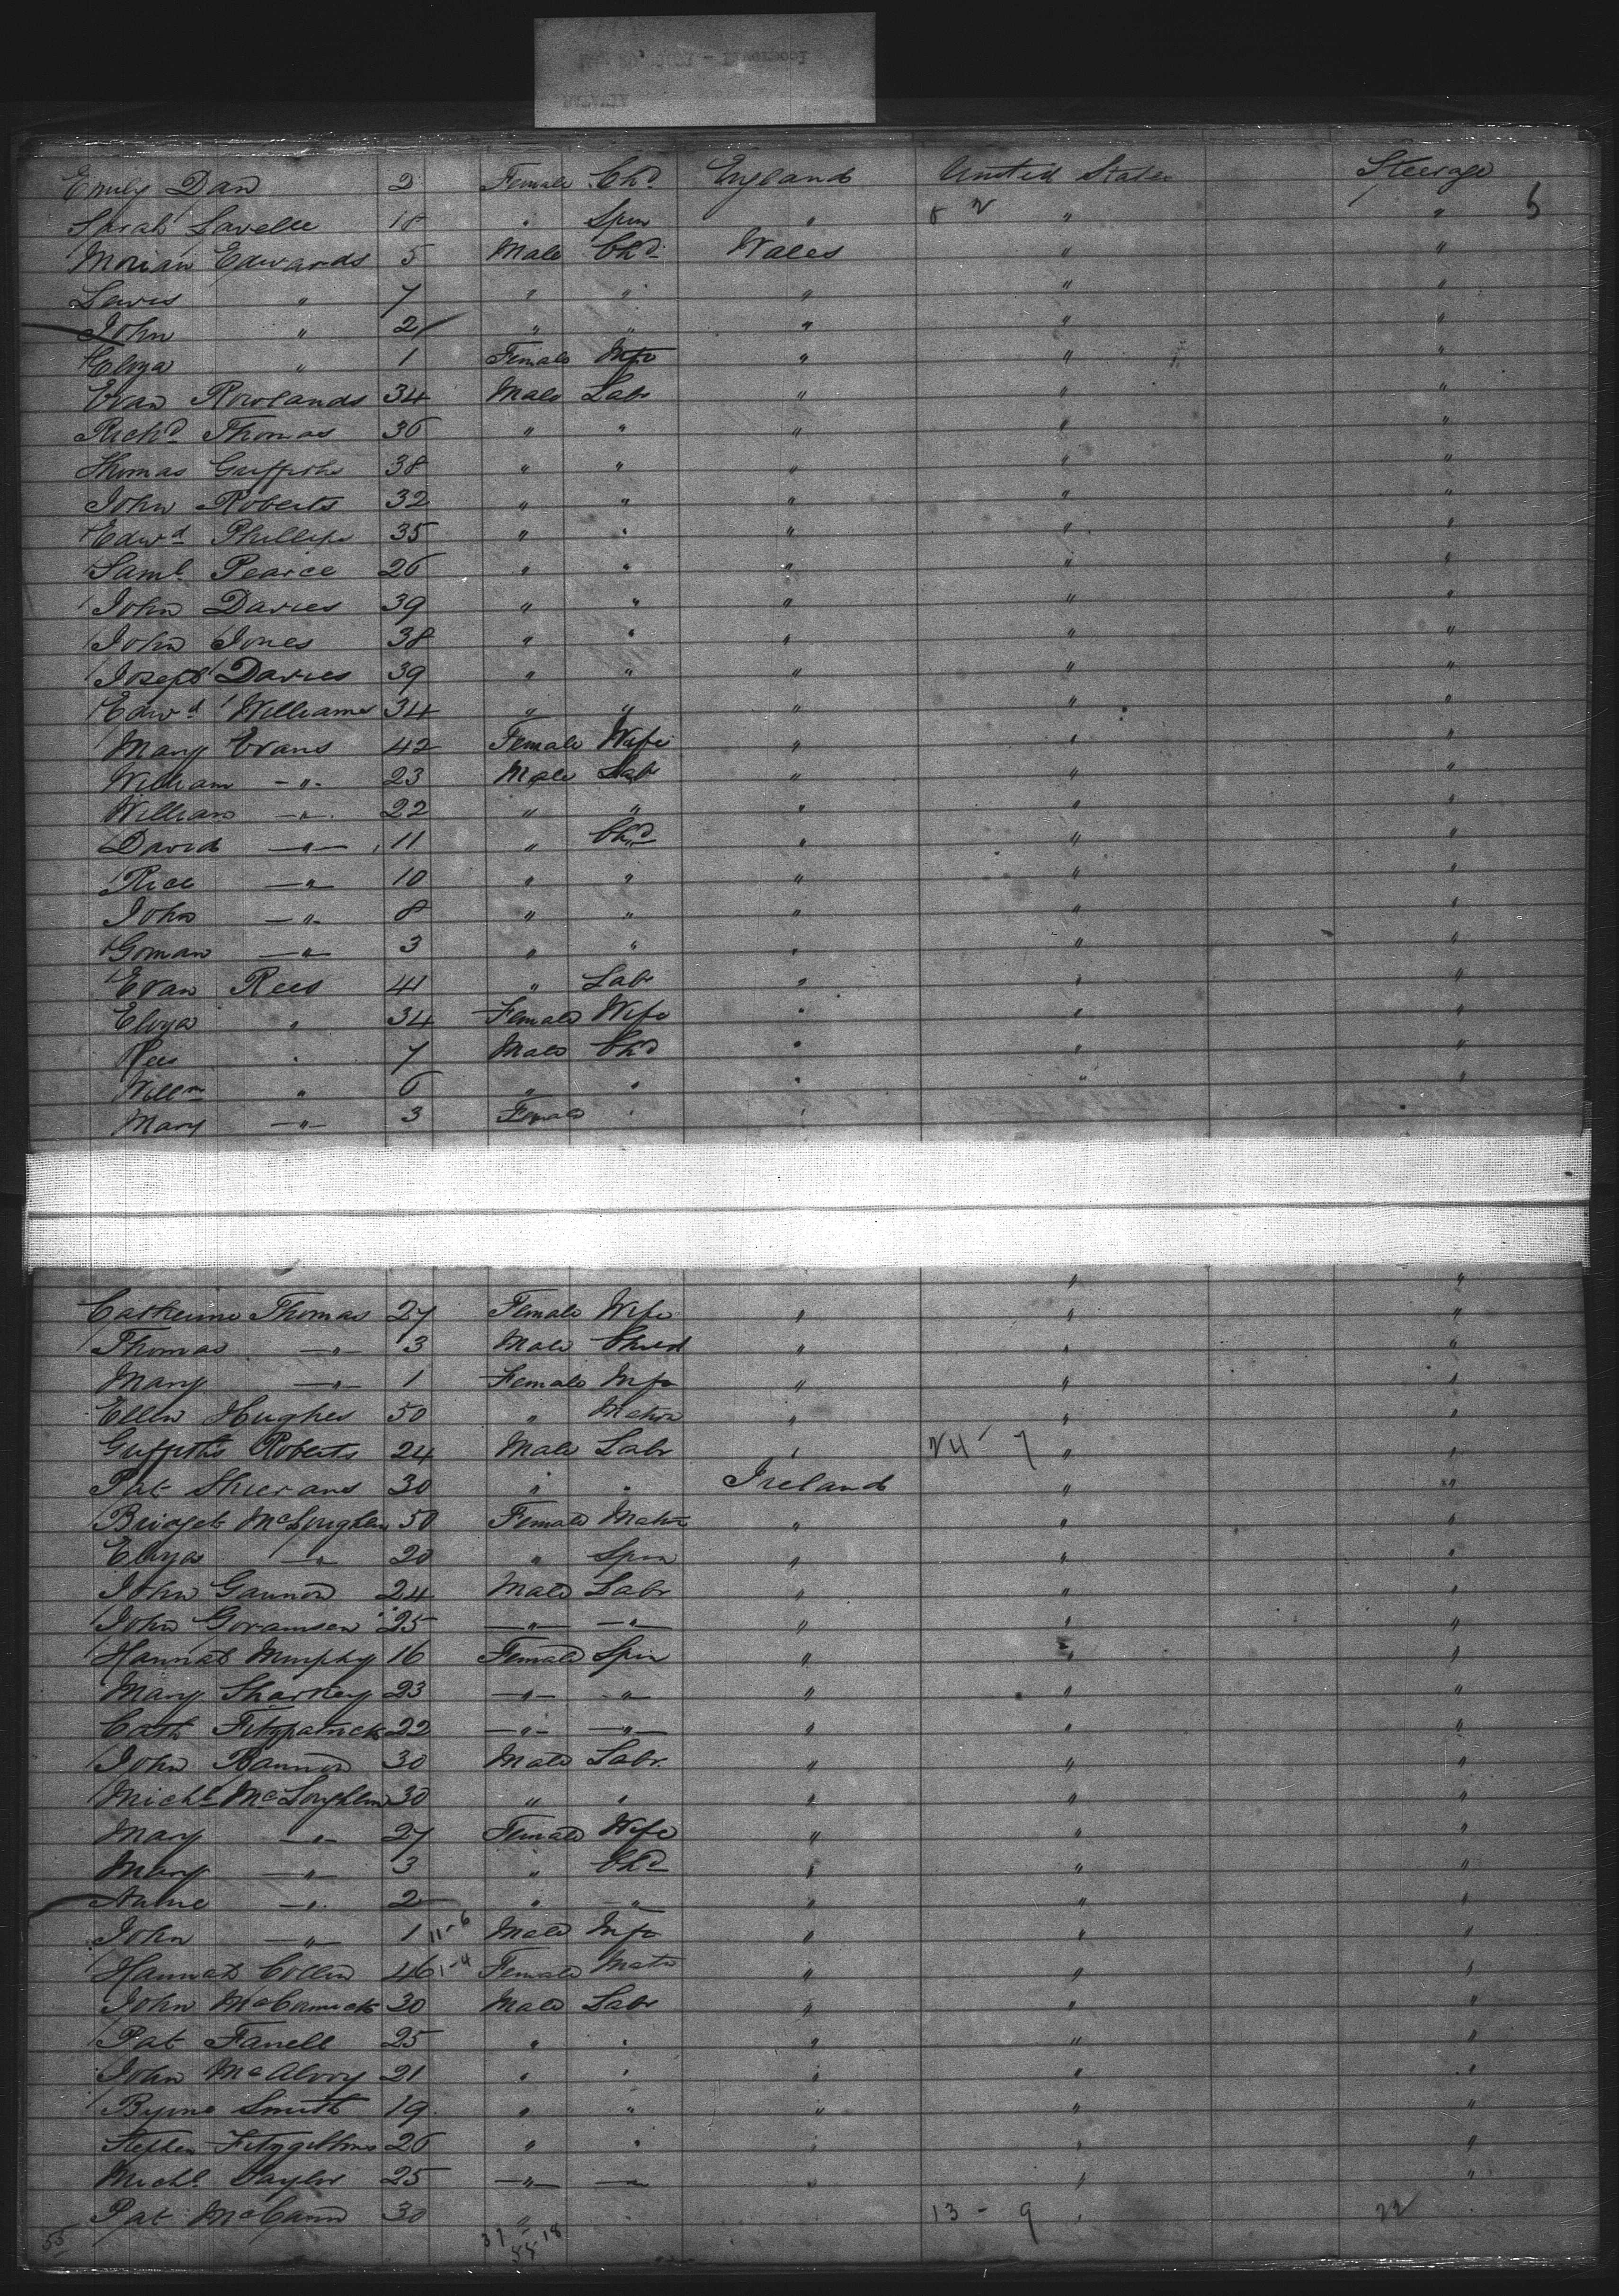 Emily Dan 2 Female Chd England United States Steerage
Sarah Lavelle 18 " Spin " 8 2 " " 6
Morian Edwards 5 Male Chd Wales " "
Lewis " 7 " " " " "
John " 2 " " " " "
Eliza " 1 Female Inft " " "
Evan Rowlands 34 Male Labr " " "
Richd Thomas 36 " " " " "
Thomas Griffiths 38 " " " " "
John Roberts 32 " " " " "
Edwd Phillips 35 " " " " "
Saml Pearce 26 " " " " "
John Davies 39 " " " " "
John Jones 38 " " " " "
Joseph Davies 39 " " " " "
Edwd Williams 34 " " " " "
Mary Evans 42 Female Wife " " "
William " 23 Male Labr " " "
William " 22 " " " " "
David " 11 " Chd " " "
Rice " 10 " " " " "
John " 8 " " " " "
Goman " 3 " " " " "
Evan Rees 41 " Labr " " "
Eliza " 34 Female Wife " " "
Rees " 7 Male Chd " " "
Willm " 6 " " " " "
Mary " 3 Female " "
" "
Catherine Thomas 27 Female Wife " " "
Thomas " 3 Male Child " " "
Mary " 1 Female Inft " " "
Ellen Hughes 50 " Matron " " "
Griffiths Roberts 24 Male Labr " 24 7 " "
Pat 30 " " Ireland " "
Bridget McLoughlin 50 Female Matn " " "
Eliza " 20 " Spin " " "
John Gannon 24 Male Labr " " "
John 25 " " " " "
Hannah Murphy 16 Female Spin " " "
Mary Sharkey 23 " " " " "
Cath Fitzpatrick 22 " " " " "
John Bannon 30 Male Labr " " "
Michl McLoughlin 30 " " " " "
Mary " 27 Female Wife " " "
Mary " 3 " Chd " " "
Anne " 2 " " " " "
John " 1 11-6 Male Inft " " "
Hannah Collin 46 1-4 Female Matn " " "
John McCormick 30 Male Labr " " "
Pat Farrell 25 " " " " "
John McAlvey 21 " " " " "
Byrne Smith 19 " " " " "
Stephen Fitzgibbons 26 " " " " "
Michl Taylor 25 " " " " "
Pat McCann 30 " " " 13 - 9 " 22
55 37 18
55